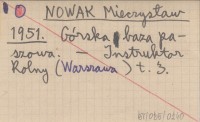 NOWAK Mieczysław
1951. Górska baza pa-
szowa. — Instruktor
Rolny (Warszawa) t. 3.